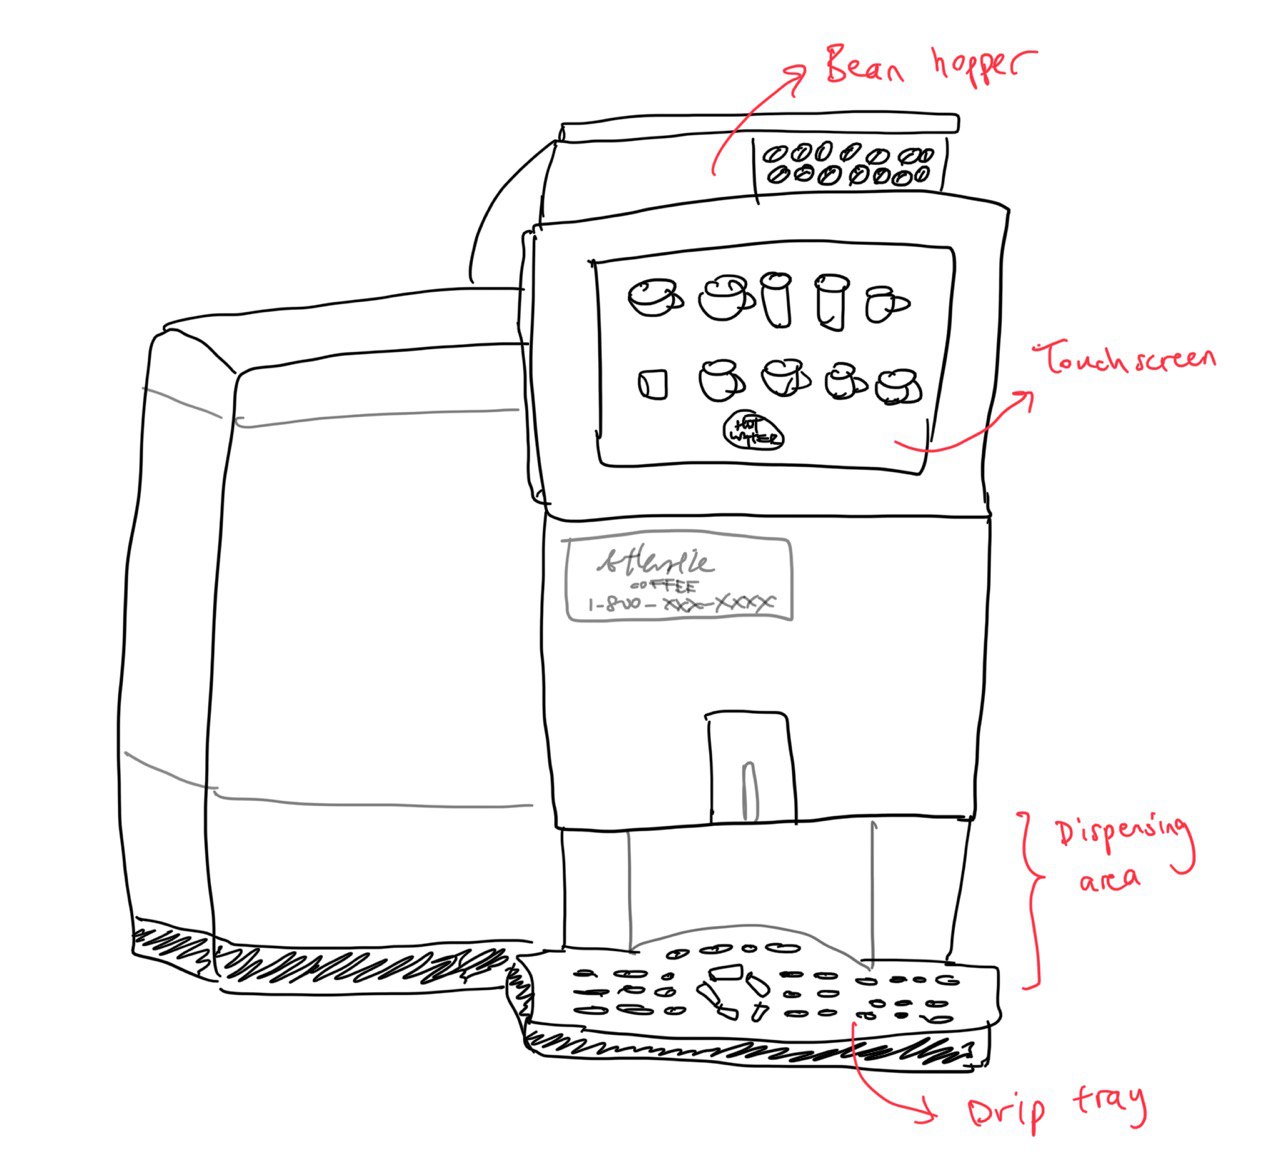 Bean hopper
Touchscreen
HOT
WATER
COFFEE
1-800-XXX-XXXX
Dispensing
area
Drip tray